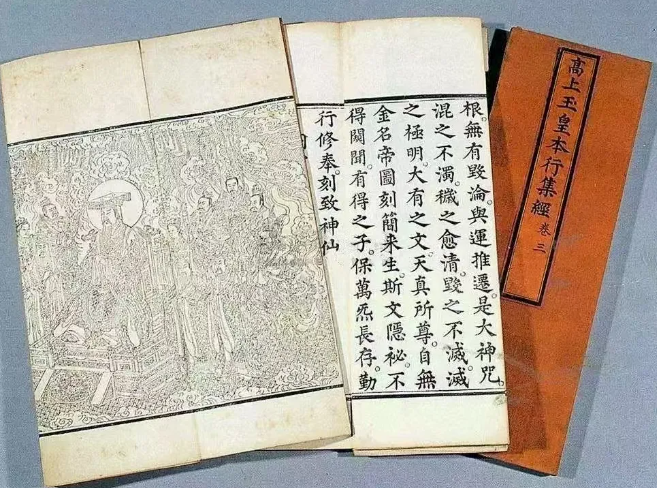 高上玉皇本行集經 卷三
根。無有毀淪。與運推遷。是大神咒。
混之不濁。穢之愈清。毀之不滅。滅
之極明。大有之文。天真所尊。自無
金名帝圖。刻簡來生。斯文隱祕。不
得闚聞。有得之子。保萬炁長存。勤
行修奉。刻致神仙